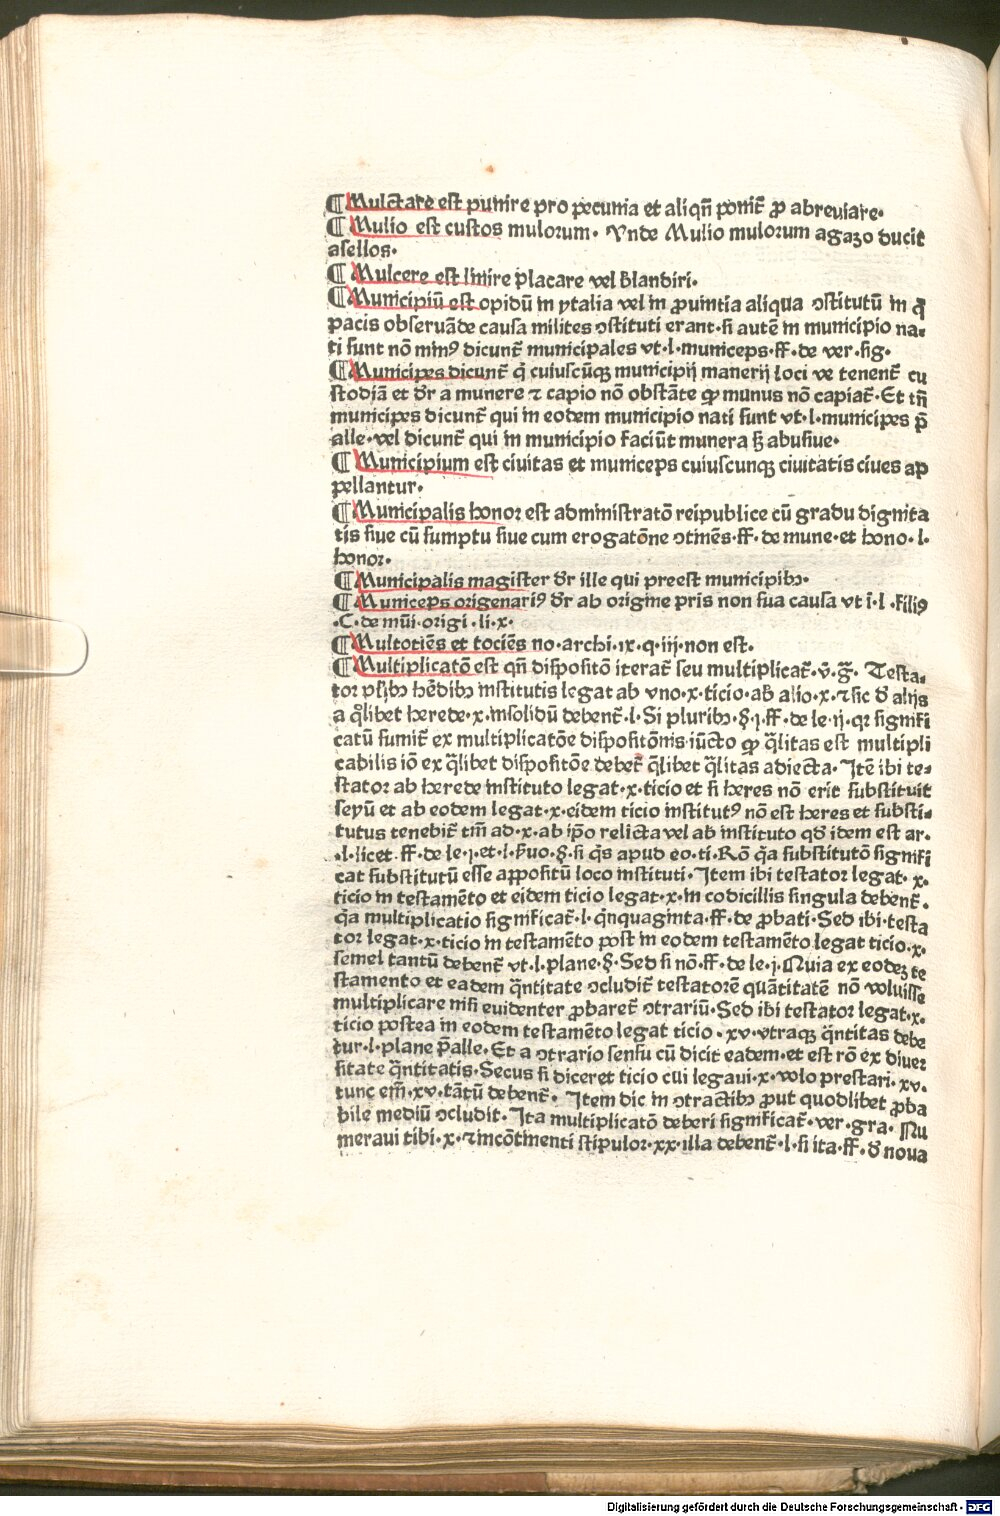 ¶ Mulctare est punire pro pecunia et aliqñ ponit̃ ꝓ abreuiare·
¶ Mulio est custos mulorum· Vnde Mulio mulorum agazo ducit
asellos·
¶ Mulcere est linire placare vel blandiri·
¶ Municipiū est opidū in ytalia vel in ꝓuintia aliqua ꝯstitutū in q̄
pacis obseruāde causa milites ꝯstituti erant·si autē in municipio na⸗
ti sunt nō minꝰ dicunt̃ municipales vt·l·municeps·ff·de ver·sig·
¶ Municipes dicunt̃ q̇ cuiuscūqꝫ municipij manerij loci ve tenent̃ cu
stodiā et d̄r a munere ⁊ capio nō obstāte ꝙ munus nō capiat̃·Et tñ
municipes dicunt̃ qui in eodem municipio nati sunt vt·l·municipes p̄
alle·vel dicunt̃ qui in municipio faciūt munera sꝫ abusiue·
¶ Municipium est ciuitas et municeps cuiuscunqꝫ ciuitatis ciues ap
pellantur·
¶ Municipalis honor est administratō reipublice cū gradu dignita
tis siue cū sumptu siue cum erogatōne ꝯtinēs·ff·de mune·et hono·l·
honor·
¶ Municipalis magister d̄r ille qui preest municipibꝫ·
¶ Municeps origenariꝰ d̄r ab origine pris non sua causa vt ī·l·filiꝰ
·C·de mūi·origi·li·x·
¶ Multotiēs et tociēs no·archi·ix·q·iij·non est·
¶ Multiplicatō est qñ dispositō iterat̃ seu multiplicat̃·v̄·g̃· Testa⸗
tor plibꝫ hēdibꝫ institutis legat ab vno·x·ticio·ab alio·x·⁊ sic d̄ alijs
a qͦlibet herede·x·insolidū debent̃·l·Si pluribꝫ·§·j·ff·de le·ij·qꝛ signifi
catū sumit̃ ex multiplicatōe dispositōnis iūcto ꝙ q̄litas est multipli
cabilis iō ex q̄libet dispositōe debet̃ q̄libet q̄litas adiecta·Itē ibi te⸗
stator ab herede instituto legat·x·ticio et si heres nō erit substituit
seyū et ab eodem legat·x·eidem ticio institutꝰ nō est heres et substi⸗
tutus tenebit̃ tm̄ ad·x·ab ip̄o relicta vel ab instituto qd idem est ar·
·l·licet·ff·de le·j·et·l·huo·§·si q̇s apud eo·ti·Rō q̄a substitutō signifi
cat substitutū esse appositū loco instituti·Item ibi testator legat·x·
ticio in testamēto et eidem ticio legat·x·in codicillis singula debent̃·
q̄a multiplicatio significat̃·l·q̇nquaginta·ff·de ꝓbati·Sed ibi·testa
tor legat·x·ticio in testamēto post in eodem testamēto legat ticio·x·
semel tantū debent̃ vt·l·plane·§·Sed si nō·ff·de le·j·Quia ex eodeꝫ te
stamento et eadem q̄ntitate ꝯcludit̃ testatorē quātitatē nō voluisse
multiplicare nisi euidenter ꝓbaret̃ ꝯtrariū·Sed ibi testator legat·x·
ticio postea in eodem testamēto legat ticio·xv·vtraqꝫ q̄ntitas debe
tur·l·plane p̄alle·Et a ꝯtrario sensu cū dicit eadem·et est rō ex diuer
sitate q̄ntitatis·Secus si diceret ticio cui legaui·x·volo prestari·xv·
tunc em̄·xv·tātū debent̃· Item dic in ꝯtractibꝫ ꝓut quodlibet ꝓba
bile mediū ꝯcludit·Ita multiplicatō deberi significat̃·ver·gra·Nu
meraui tibi·x·⁊ incōtinenti stipulor·xx·illa debent̃·l·si ita·ff·d̄ noua
Digitalisierung gefördert durch die Deutsche Forschungsgemeinschaft - DFG